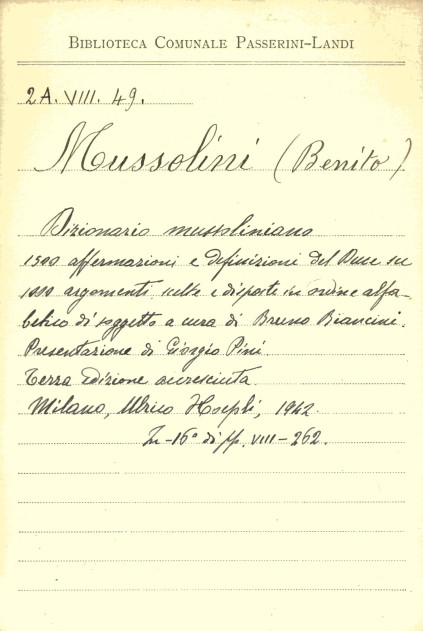 BIBLIOTECA COMUNALE PASSERINI-LANDI
2A. VIII. 49.
Mussolini (Benito)
Dizionario mussoliniano
1500 affermazioni e definizioni del Duce su
1000 argomenti scelte e disposte in ordine alfa-
betico di soggetto a cura di Bruno Biancini.
Presentazione di Giorgio Pini.
Terza edizione accresciuta.
Milano, Ulrico Hoepli, 1942.
In-16° di pp. VIII-262.